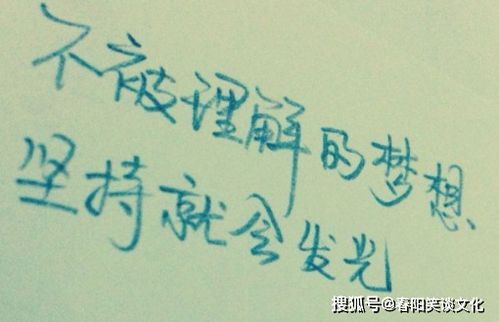 不被理解的梦想
坚持就会发光
搜狐号@春阳笑谈文化